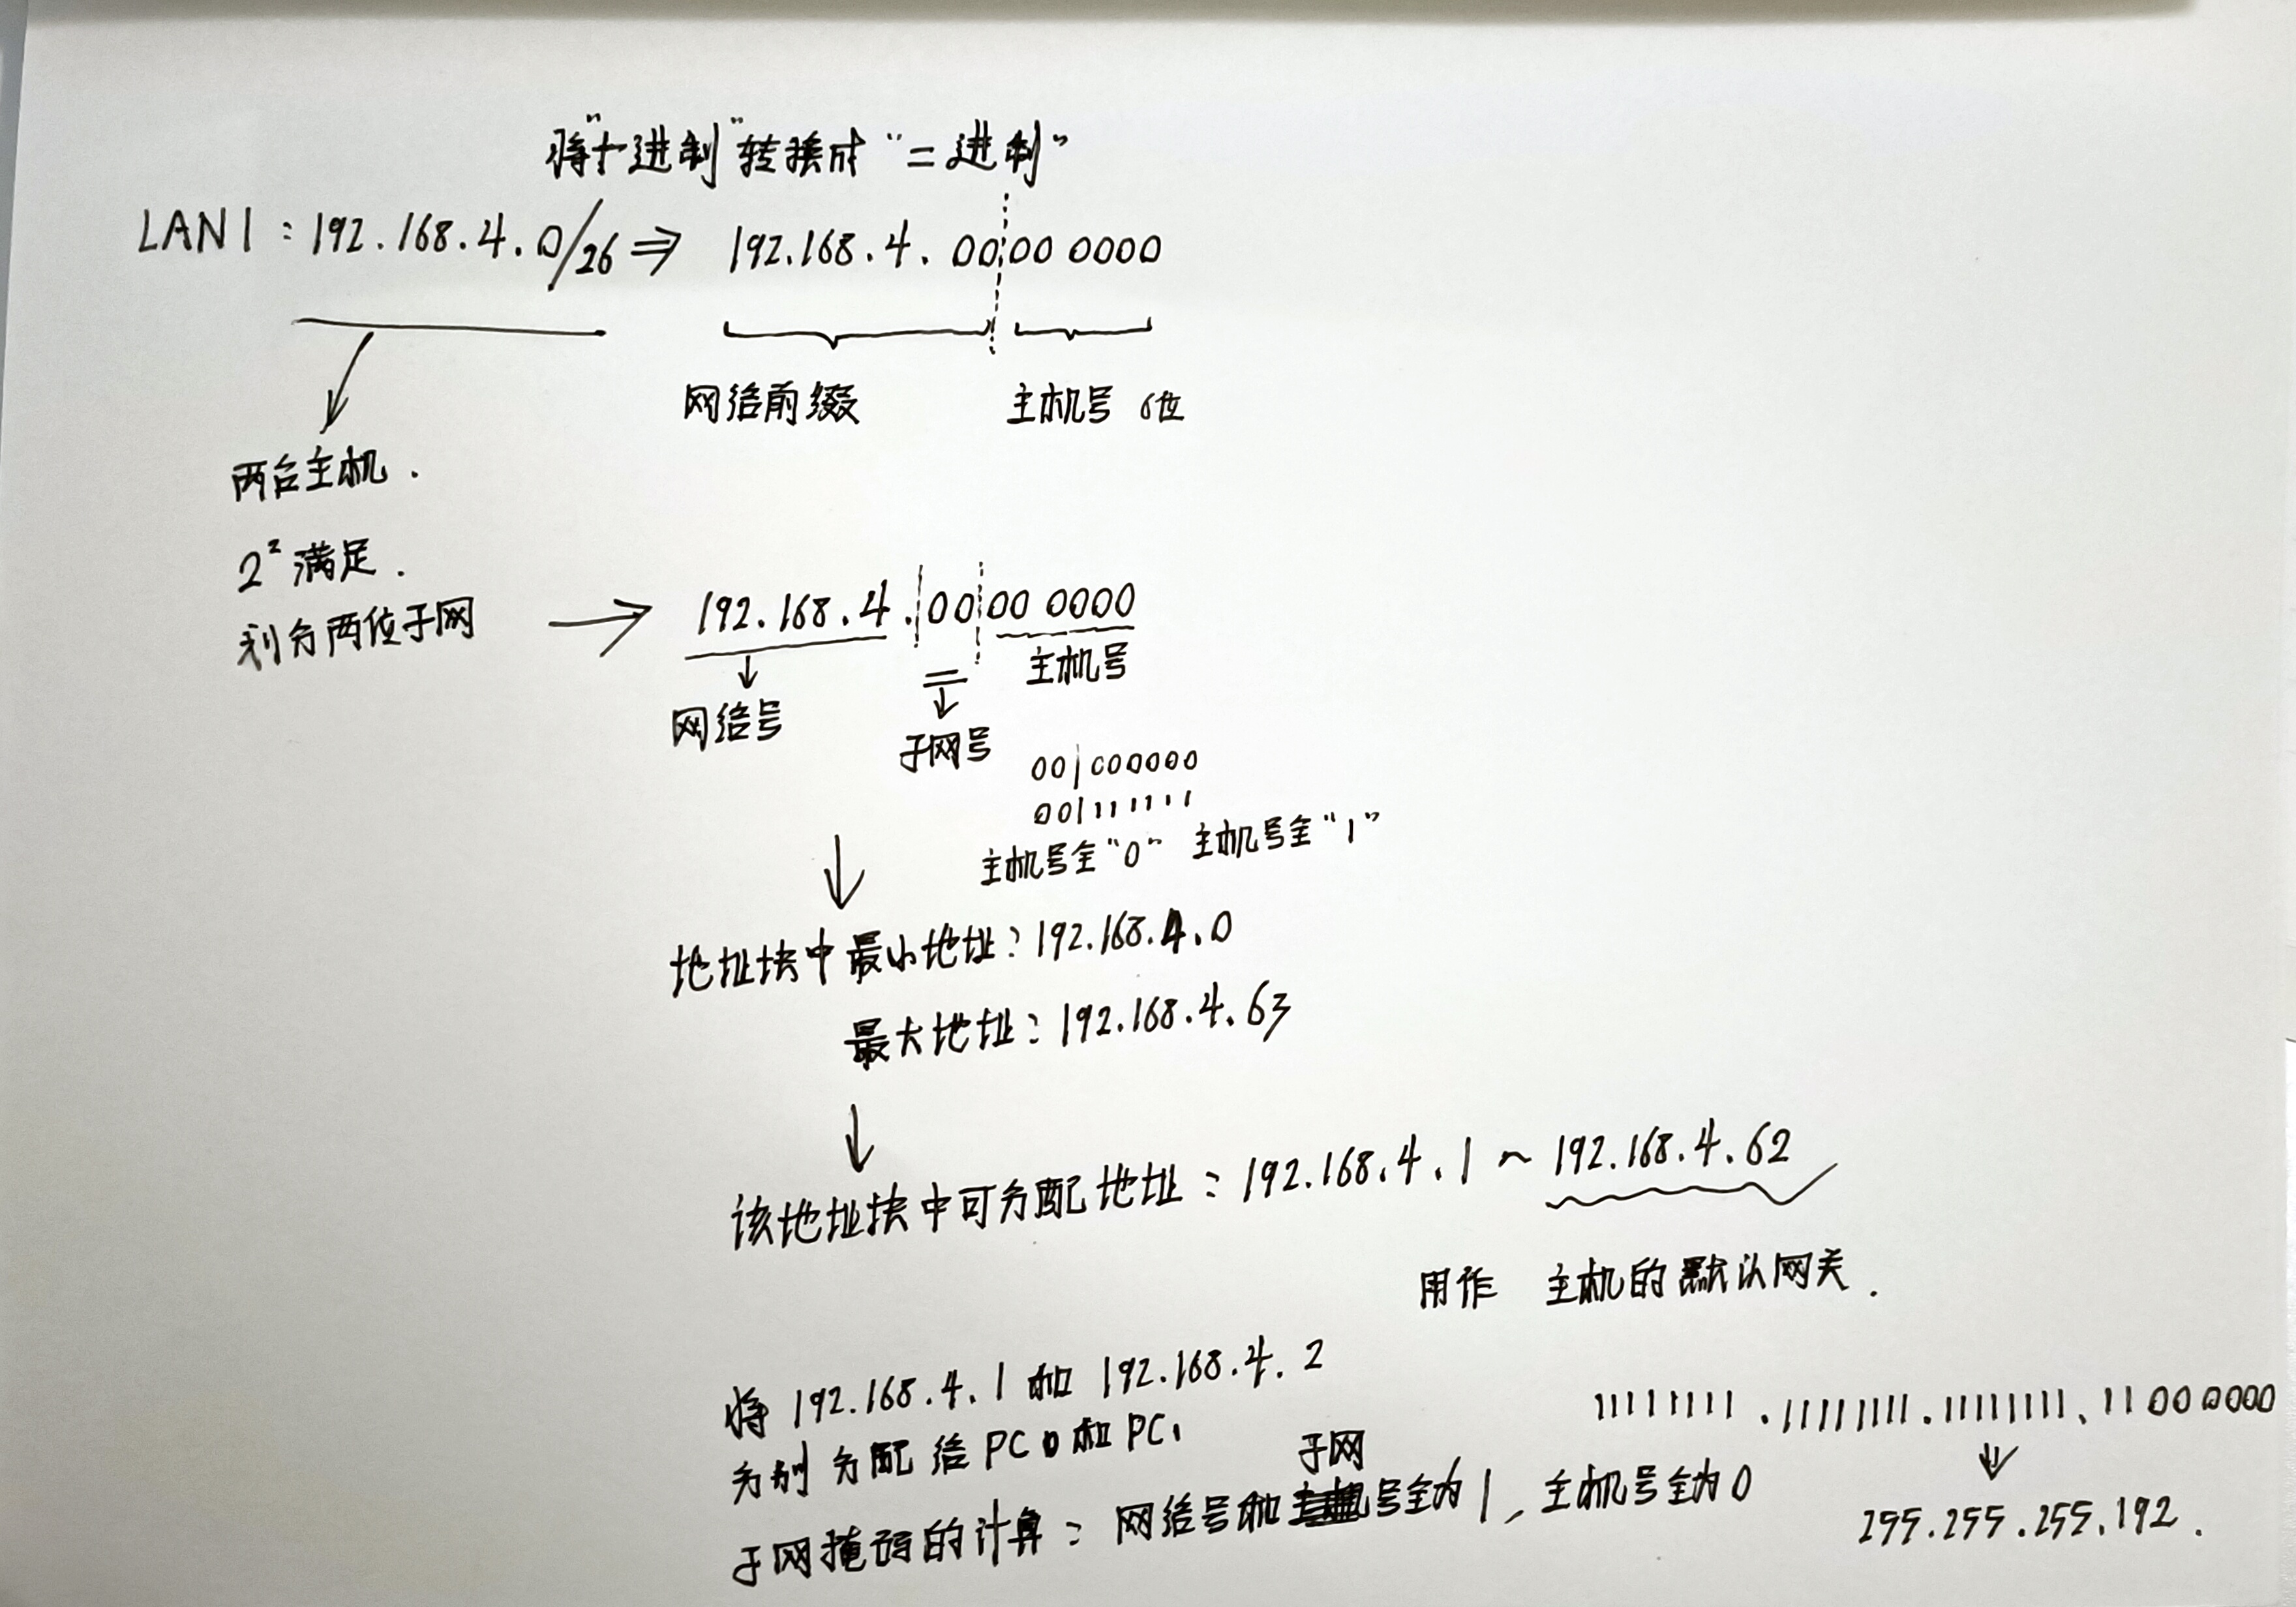 将"十进制"转换成"二进制"
LAN1：192.168.4.0/26 ⇒ 192.168.4.0000 0000
网络前缀 主机号 6位
两台主机.
2² 满足.
划分两位子网 → 192.168.4.0000 0000
网络号 子网号 主机号
00|000000
00|111111
主机号全"0" 主机号全"1"
地址块中最小地址：192.168.4.0
最大地址：192.168.4.63
该地址块中可分配地址：192.168.4.1 ~ 192.168.4.62
用作 主机的默认网关.
将 192.168.4.1 和 192.168.4.2
分别分配给 PC0和PC1
子网掩码的计算：网络号和子网号全为1, 主机号全为0
11111111.11111111.11111111.11000000
255.255.255.192.